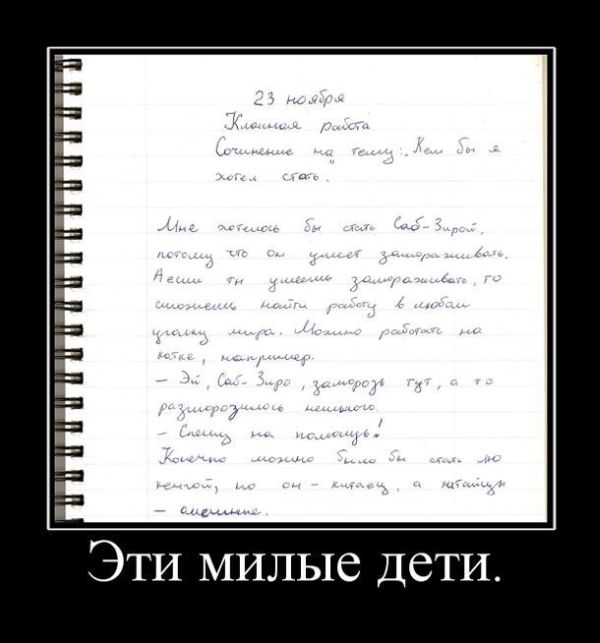 23 ноября
Классная работа
Сочинение на тему: "Кем бы я
хотел стать".
Мне хотелось бы стать Саб-Зирой,
потому что он умеет замораживать.
А если ты умеешь замораживать, то
сможешь найти работу в любом
уголку мира. Можно работать на
катке, например.
– Эй, Саб-Зиро, заморозь тут, а то
разморозилось немного.
– Спешу на помощь!
Конечно можно было бы стать лю
кенгой, но он – китаец, а китайцы
–
Эти милые дети.